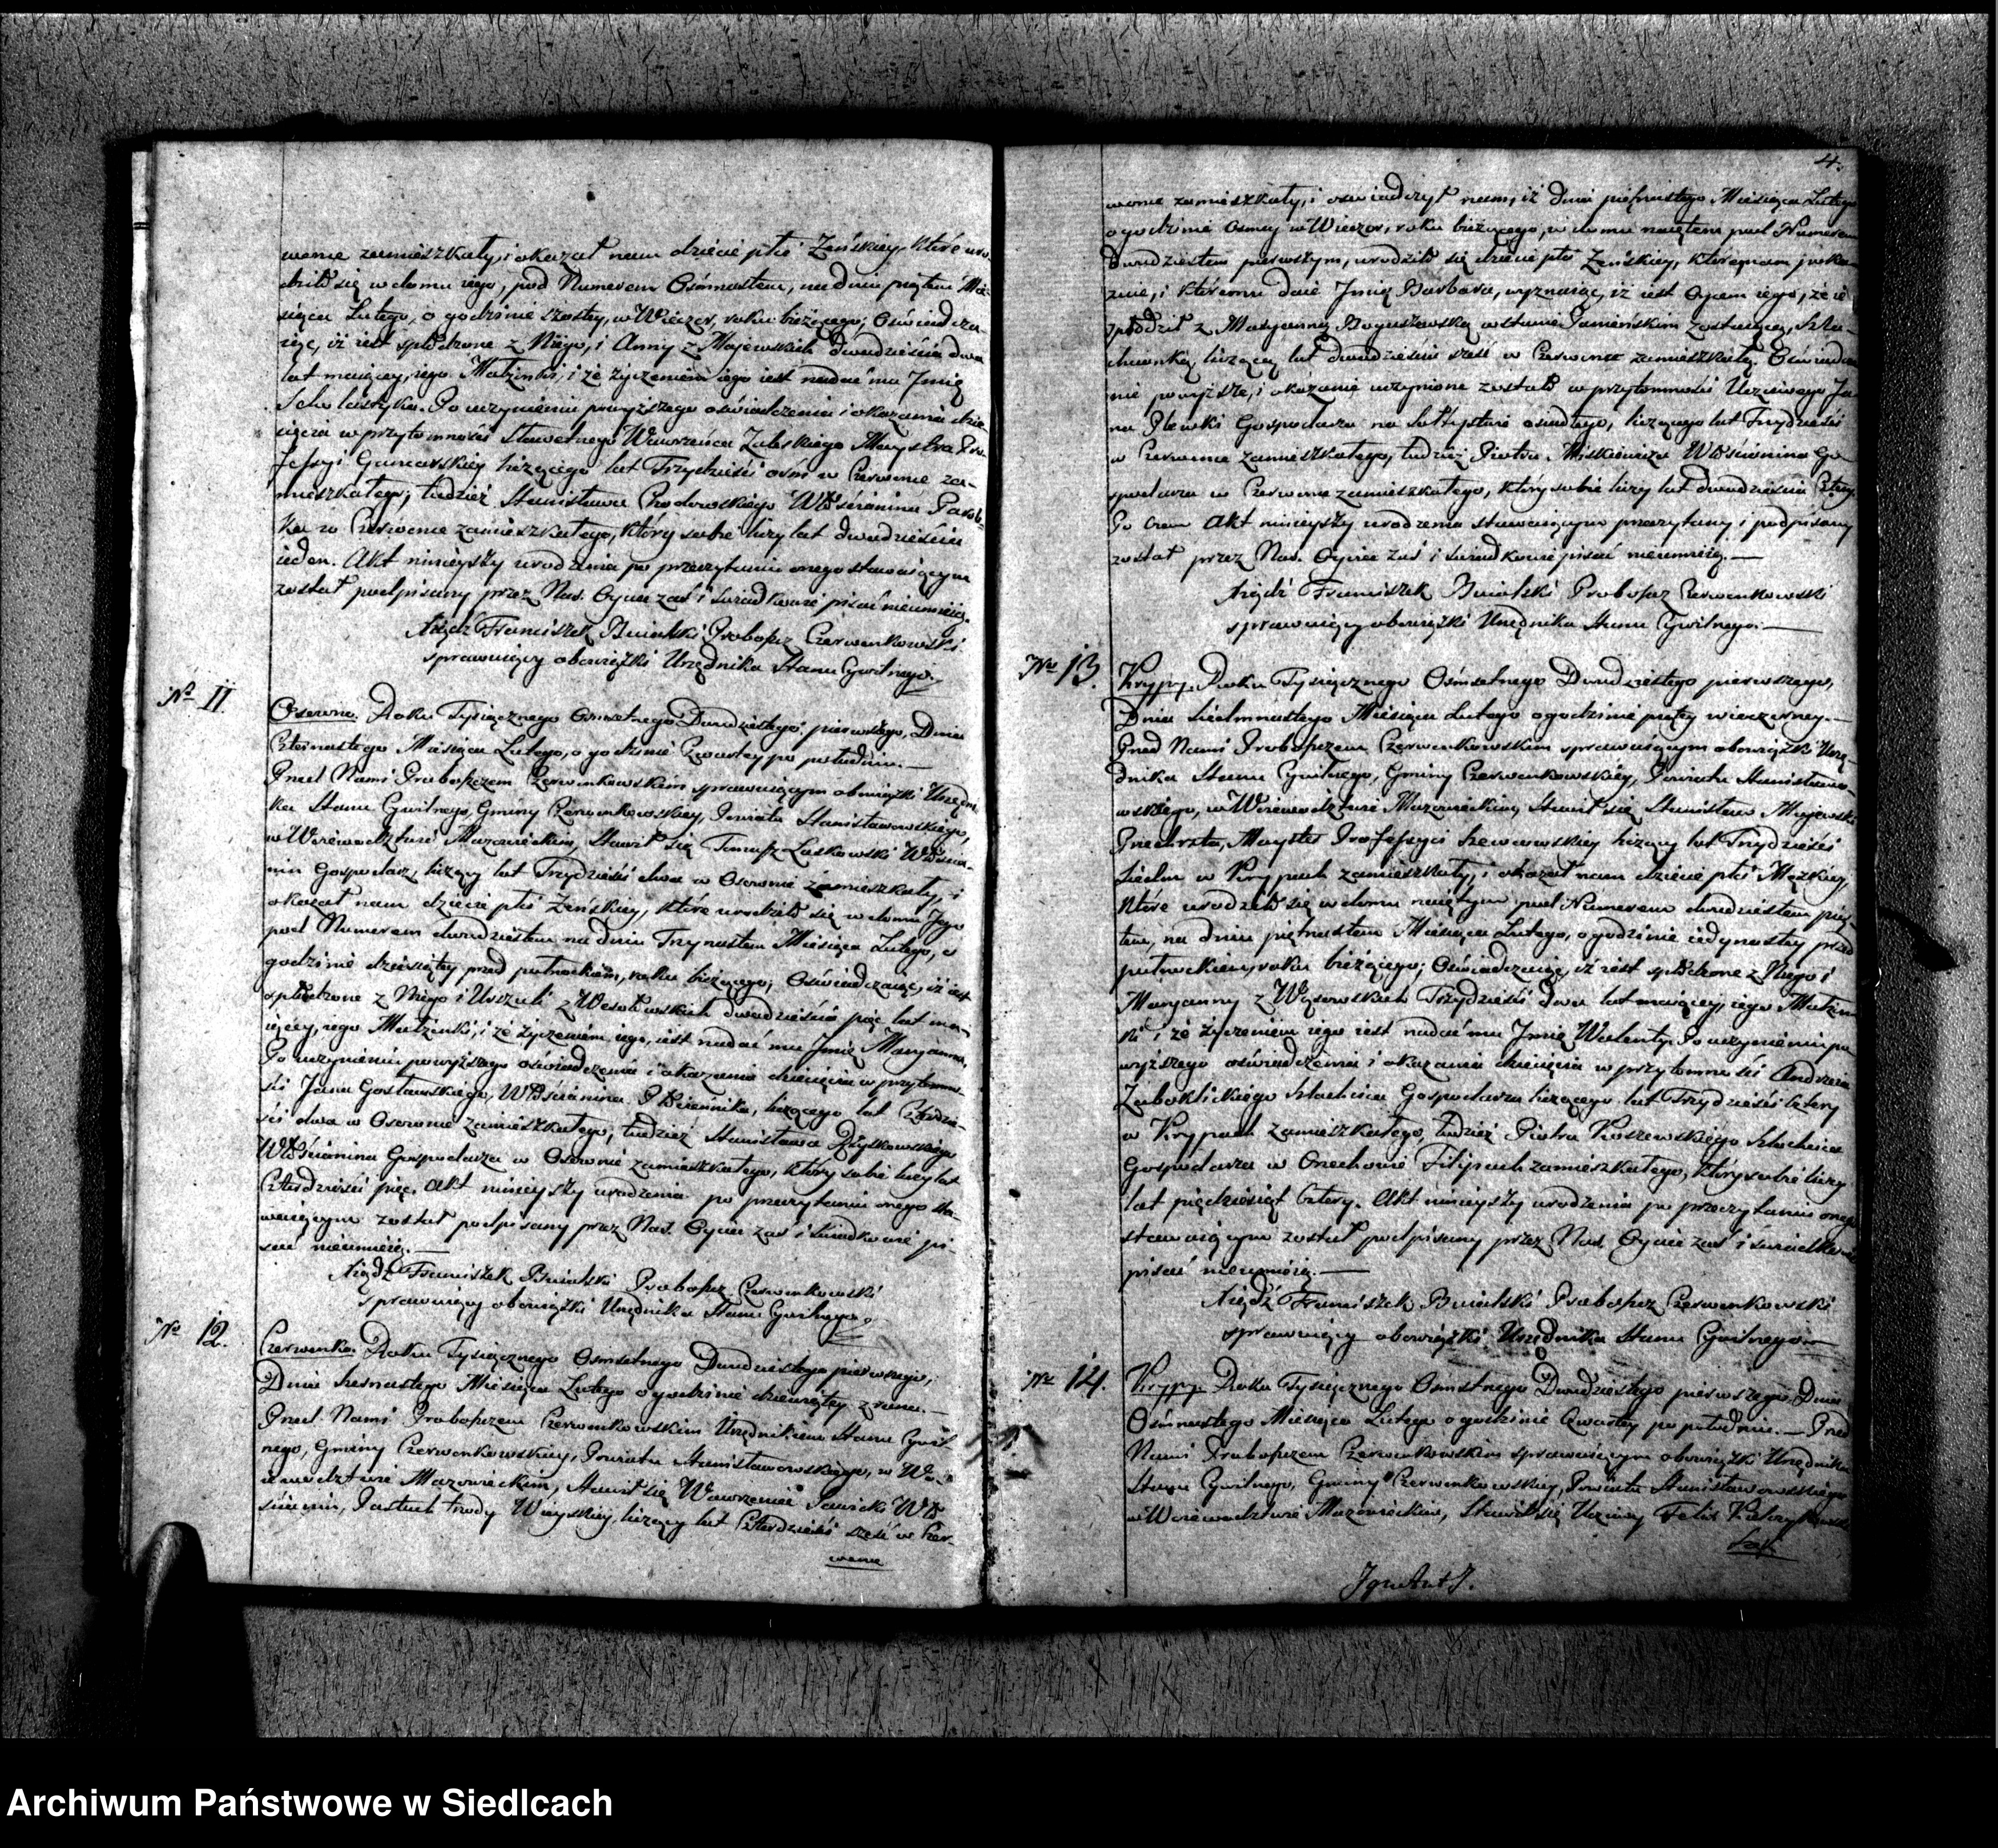 wonce zamieszkały, i okazał nam dziecie płci Zeńskiey, które uro-
dziło się w domu iego, pod Numerem Osmnastem, na dniu piątem Mie-
siąca Lutego, o godzinie szostey, w Wieczor, roku bieżącego; Oswiadcza-
iąc, iż iest spłodzone z Niego, i Anny z Majewskich dwadzieścia dwa
lat maiącey, iego Małżonki, i że życzeniem iego iest nadać mu Jmię
Scholastyka. Po uczynieniu powyższego oświadczenia i okazaniu dzie-
cięcia w przytomności Sławetnego Wawrzeńca Zaleskiego Maystra Pro-
fessyi Garncarskiey liczącego lat Trzydzieści ośm w Czerwonce za-
mieszkałego, tudzież Stanisława Chodowskiego Włościanina Parob-
ka w Czerwonce zamieszkałego, który sobie liczy lat dwadzieścia
ieden. Akt ninieyszy urodzenia po przeczytaniu onego stawaiącym
został podpisany przez Nas. Oyciec zaś i świadkowie pisać nieumieią.
Xiądz Franciszek Bnialski Proboszcz Czerwonkowski
sprawuiący obowiązki Urzędnika Stanu Cywilnego.
Nro 11.
Osowno. Roku Tysiącznego Osmsetnego Dwudziestego pierwszego, Dnia
Czternastego Miesiąca Lutego, o godzinie Czwartey po południu.—
Przed Nami Proboszczem Czerwonkowskim sprawuiącym obowiązki Urzędni-
ka Stanu Cywilnego, Gminy Czerwonkowskiey, Powiatu Stanisławowskiego,
w Woiewodztwie Mazowieckim, Stawił się Tomasz Laskowski Włościa-
nin Gospodarz, liczący lat Trzydzieści dwa w Osownie zamieszkały, i
okazał nam dziecie płci Zeńskiey, które urodziło się w domu Jego
pod Numerem dwudziestem na dniu Trzynastem Miesiąca Lutego, o
godzinie dziesiątey przed południem, roku bieżącego; Oświadczaiąc, iż iest
spłodzone z Niego i Urszuli z Wesołowskich dwadzieścia pięć lat ma-
iącey, iego Małżonki, i że życzeniem iego, iest nadać mu Jmię Maryanna,
Po uczynieniu powyższego oświadczenia i okazania dziecięcia w przytomno-
ści Jana Gostawskiego, Włościanina liczącego lat Czterdzie-
ści dwa w Osownie zamieszkałego, tudzież Stanisława
Włościanina Gospodarza w Osownie zamieszkałego, który sobie liczy lat
Czterdzieści pięć. Akt ninieyszy urodzenia po przeczytaniu onego sta-
waiącym został podpisany przez Nas. Oyciec zaś i świadkowie pi-
sać nieumieią.—
Xiądz Franciszek Bnialski Proboszcz Czerwonkowski
sprawuiący obowiązki Urzędnika Stanu Cywilnego.
Nro 12.
Czerwonka. Roku Tysiącznego Osmsetnego Dwudziestego pierwszego,
Dnia Szesnastego Miesiąca Lutego o godzinie dziewiątey z rana.—
Przed Nami Proboszczem Czerwonkowskim Urzędnikiem Stanu Cywil-
nego, Gminy Czerwonkowskiey, Powiatu Stanisławowskiego, w Wo-
iewodztwie Mazowieckim, Stawił się Wawrzeniec Sawicki Wło-
ścianin, Pastuch trzody Wieyskiey, liczący lat Czterdzieści sześć w Czer-
wonce
4.
wonce zamieszkały, i oświadczył nam, iż dnia piętnastego Miesiąca Lutego
o godzinie Osmey w Wieczor, roku bieżącego, w domu naiętem pod Numerem
Dwudziestem pierwszym, urodziło się dziecie płci Zeńskiey, które nam poka-
zuie, i któremu daie Jmię Barbara, wyznaiąc, iż iest Oycem iego, że ie
spłodził z Maryanną Boguszewską w stanie Panieńskim zostaiącą, Szla-
chcianką, liczącą lat dwadzieścia sześć w Czerwonce zamieszkałą. Oświadcze-
nie powyższe, i okazanie uczynione zostało w przytomności Uczciwego Ja-
na Plewki Gospodarza na Sołtystwie osiadłego, liczącego lat Trzydzieści
w Czerwonce zamieszkałego, tudzież Piotra Miskiewicza Włościanina Go-
spodarza w Czerwonce zamieszkałego, który sobie liczy lat dwadzieścia Cztery.
Po czem Akt ninieyszy urodzenia stawaiącym przeczytany i podpisany
został przez Nas. Oyciec zaś i świadkowie pisać nieumieią.—
Xiądz Franciszek Bnialski Proboszcz Czerwonkowski
sprawuiący obowiązki Urzędnika Stanu Cywilnego.—
Nro 13.
Krypy. Roku Tysiącznego Osmsetnego Dwudziestego pierwszego,
Dnia Siedmnastego Miesiąca Lutego o godzinie piątey wieczorney.—
Przed Nami Proboszczem Czerwonkowskim sprawuiącym obowiązki Urzę-
dnika Stanu Cywilnego, Gminy Czerwonkowskiey, Powiatu Stanisławo-
wskiego, w Woiewodztwie Mazowieckim, Stawił się Stanisław Majewski
Przechrzta, Mayster Professyi Szewcowskiey liczący lat Trzydzieści
siedm w Krypach zamieszkały, i okazał nam dziecie płci Męzkiey,
które urodziło się w domu naiętym pod Numerem dwudziestem pią-
tem, na dniu piętnastem Miesiąca Lutego, o godzinie iedynastey przed
południem roku bieżącego; Oświadczaiąc, iż iest spłodzone z Niego i
Maryanny z Wąsowskich Trzydzieści dwa lat maiącey, iego Małżon-
ki i że życzeniem iego iest nadać mu Jmię Walenty. Po uczynieniu po
wyższego oświadczenia i okazania dziecięcia w przytomności Andrzeia
Zaboklickiego Szlachcica Gospodarza liczącego lat Trzydzieści Cztery
w Krypach zamieszkałego, tudzież Piotra Koszewskiego Szlachcica
Gospodarza w Orzechowie Filipach zamieszkałego, który sobie liczy
lat pięćdziesiąt Cztery. Akt ninieyszy urodzenia po przeczytaniu onego
stawaiącym został podpisany przez Nas Oyciec zaś i świadkowie
pisać nieumieią.—
Xiądz Franciszek Bnialski Proboszcz Czerwonkowski
sprawuiący obowiązki Urzędnika Stanu Cywilnego—
Nro 14.
Krypy. Roku Tysiącznego Osmsetnego Dwudziestego pierwszego, Dnia
Osmnastego Miesiąca Lutego o godzinie Czwartey po południu.— Przed
Nami Proboszczem Czerwonkowskim sprawuiącym obowiązki Urzędnika
Stanu Cywilnego, Gminy Czerwonkowskiey, Powiatu Stanisławowskiego
w Woiewodztwie Mazowieckim, Stawił się Uczciwy Felix
Archiwum Państwowe w Siedlcach